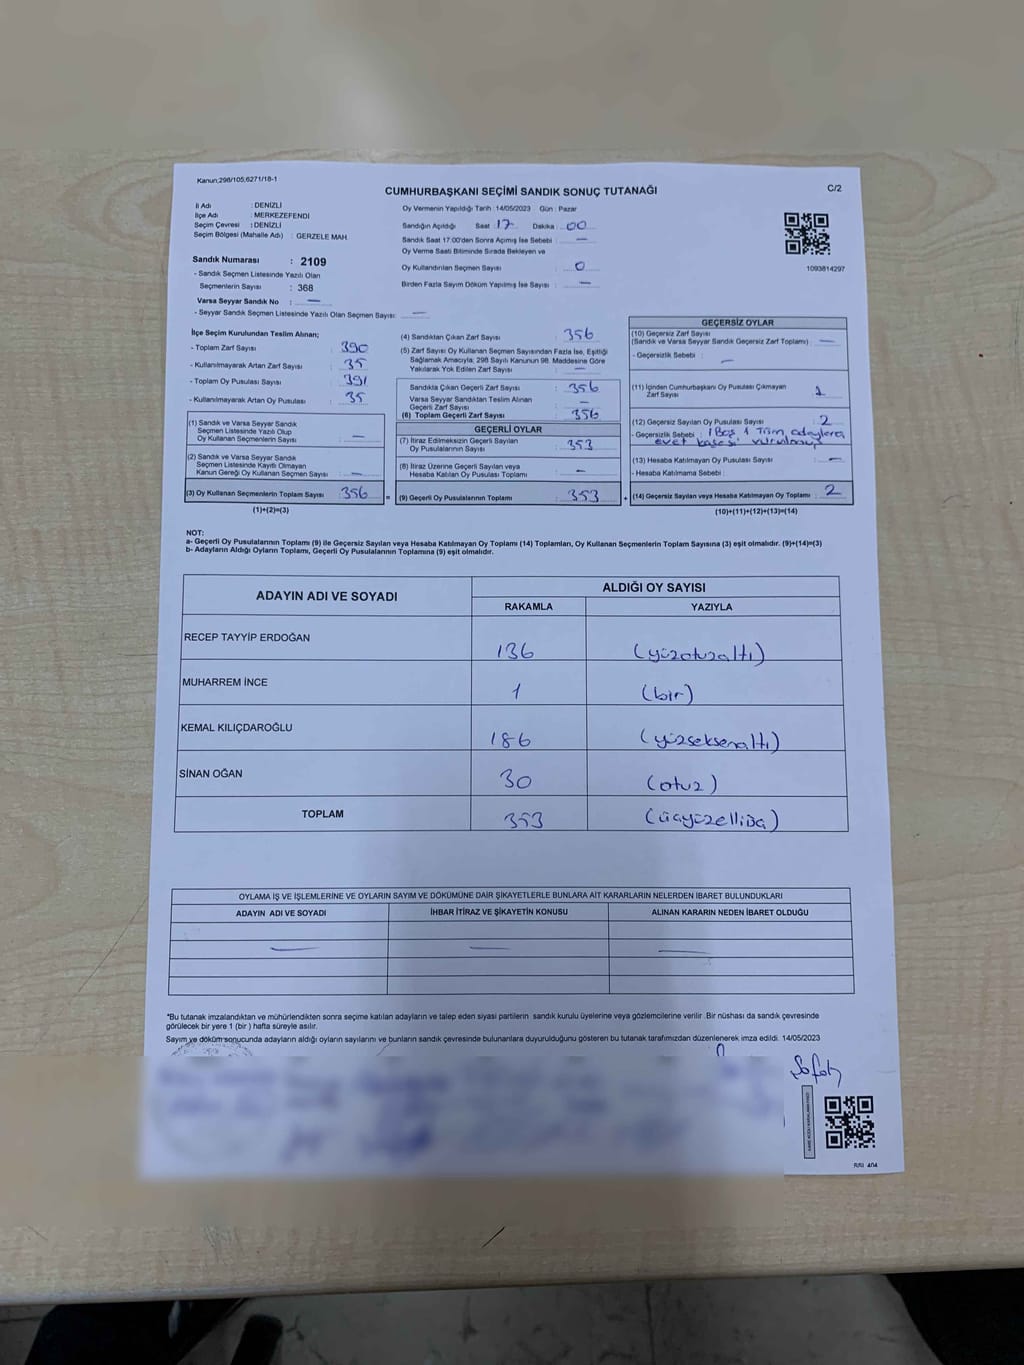 Kanun;298/105,6271/18-1
CUMHURBAŞKANI SEÇİMİ SANDIK SONUÇ TUTANAĞI
C/2
İl Adı : DENİZLİ
İlçe Adı : MERKEZEFENDİ
Seçim Çevresi : DENİZLİ
Seçim Bölgesi (Mahalle Adı) : GERZELE MAH.
Sandık Numarası : 2109
- Sandık Seçmen Listesinde Yazılı Olan
Seçmenlerin Sayısı : 368
Varsa Seyyar Sandık No : —
- Seyyar Sandık Seçmen Listesinde Yazılı Olan Seçmen Sayısı: —
Oy Vermenin Yapıldığı Tarih : 14/05/2023 Gün : Pazar
Sandığın Açıldığı Saat : 17 Dakika : 00
Sandık Saat 17:00'den Sonra Açılmış İse Sebebi : —
Oy Verme Saati Bitiminde Sırada Bekleyen ve
Oy Kullandırılan Seçmen Sayısı : 0
Birden Fazla Sayım Döküm Yapılmış İse Sayısı : —
1093814297
İlçe Seçim Kurulundan Teslim Alınan;
- Toplam Zarf Sayısı : 390
- Kullanılmayarak Artan Zarf Sayısı : 35
- Toplam Oy Pusulası Sayısı : 391
- Kullanılmayarak Artan Oy Pusulası : 35
(1) Sandık ve Varsa Seyyar Sandık
Seçmen Listesinde Yazılı Olup
Oy Kullanan Seçmenlerin Sayısı : —
(2) Sandık ve Varsa Seyyar Sandık
Seçmen Listesinde Kayıtlı Olmayan
Kanun Gereği Oy Kullanan Seçmen Sayısı : —
(3) Oy Kullanan Seçmenlerin Toplam Sayısı : 356 =
(1)+(2)=(3)
(4) Sandıktan Çıkan Zarf Sayısı : 356
(5) Zarf Sayısı Oy Kullanan Seçmen Sayısından Fazla İse, Eşitliği
Sağlamak Amacıyla; 298 Sayılı Kanunun 98. Maddesine Göre
Yakılarak Yok Edilen Zarf Sayısı : —
Sandıkta Çıkan Geçerli Zarf Sayısı : 356
Varsa Seyyar Sandıktan Teslim Alınan
Geçerli Zarf Sayısı : —
(6) Toplam Geçerli Zarf Sayısı : 356
GEÇERLİ OYLAR
(7) İtiraz Edilmeksizin Geçerli Sayılan
Oy Pusulalarının Sayısı : 353
(8) İtiraz Üzerine Geçerli Sayılan veya
Hesaba Katılan Oy Pusulası Toplamı : —
(9) Geçerli Oy Pusulalarının Toplamı : 353 +
GEÇERSİZ OYLAR
(10) Geçersiz Zarf Sayısı
(Sandık ve Varsa Seyyar Sandık Geçersiz Zarf Toplamı) : —
- Geçersizlik Sebebi : —
(11) İçinden Cumhurbaşkanı Oy Pusulası Çıkmayan
Zarf Sayısı : 1
(12) Geçersiz Sayılan Oy Pusulası Sayısı : 2
- Geçersizlik Sebebi : 1 Boş 1 Tüm adaylara
evet vurulmuş
(13) Hesaba Katılmayan Oy Pusulası Sayısı : —
- Hesaba Katılmama Sebebi :
(14) Geçersiz Sayılan veya Hesaba Katılmayan Oy Toplamı : 2
(10)+(11)+(12)+(13)=(14)
NOT:
a- Geçerli Oy Pusulalarının Toplamı (9) ile Geçersiz Sayılan veya Hesaba Katılmayan Oy Toplamı (14) Toplamları, Oy Kullanan Seçmenlerin Toplam Sayısına (3) eşit olmalıdır. (9)+(14)=(3)
b- Adayların Aldığı Oyların Toplamı, Geçerli Oy Pusulalarının Toplamına (9) eşit olmalıdır.
ADAYIN ADI VE SOYADI
ALDIĞI OY SAYISI
RAKAMLA YAZIYLA
RECEP TAYYİP ERDOĞAN 136 (yüzotuzaltı)
MUHARREM İNCE 1 (bir)
KEMAL KILIÇDAROĞLU 186 (yüzseksenaltı)
SİNAN OĞAN 30 (otuz)
TOPLAM 353
OYLAMA İŞ VE İŞLEMLERİNE VE OYLARIN SAYIM VE DÖKÜMÜNE DAİR ŞİKAYETLERLE BUNLARA AİT KARARLARIN NELERDEN İBARET BULUNDUKLARI
ADAYIN ADI VE SOYADI İHBAR İTİRAZ VE ŞİKAYETİN KONUSU ALINAN KARARIN NEDEN İBARET OLDUĞU
— — —
*Bu tutanak imzalandıktan ve mühürlendikten sonra seçime katılan adayların ve talep eden siyasi partilerin sandık kurulu üyelerine veya gözlemcilerine verilir. Bir nüshası da sandık çevresinde
görülecek bir yere 1 (bir ) hafta süreyle asılır.
Sayım ve döküm sonucunda adayların aldığı oyların sayılarını ve bunların sandık çevresinde bulunanlara duyurulduğunu gösteren bu tutanak tarafımızdan düzenlenerek imza edildi. 14/05/2023